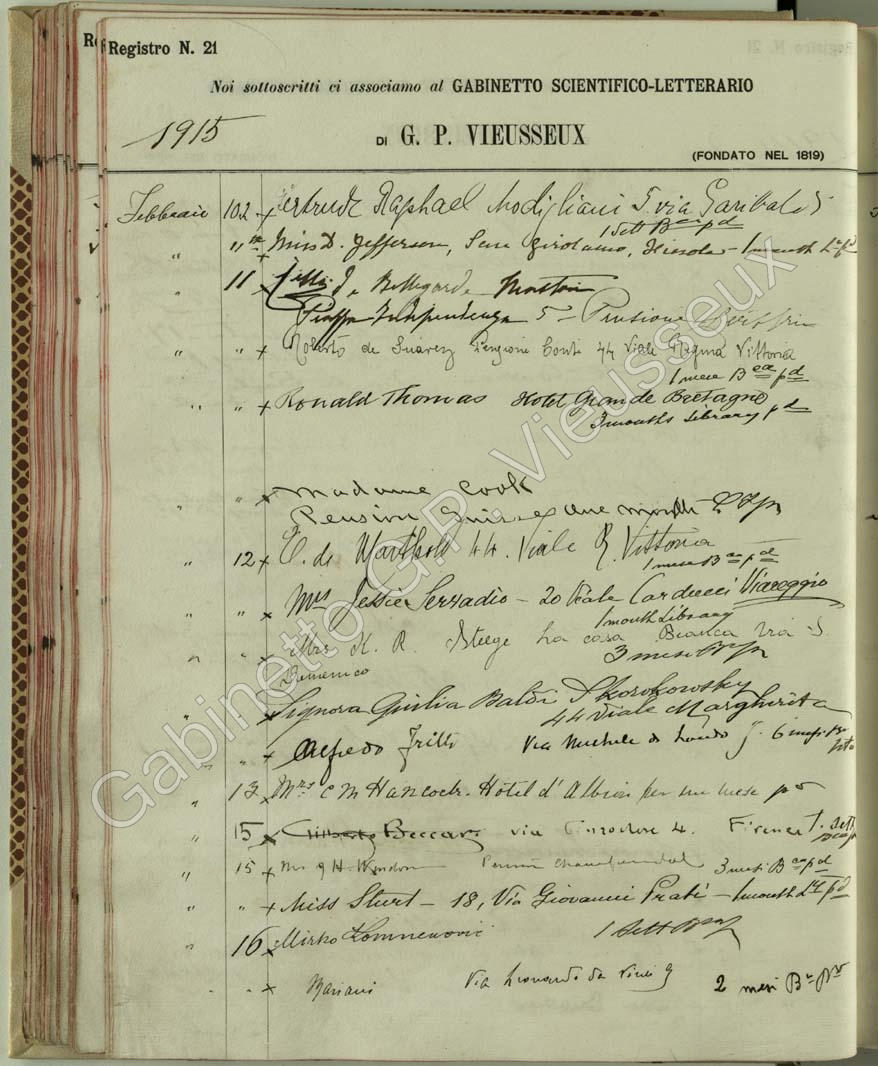 Registro N. 21
Noi sottoscritti ci associamo al GABINETTO SCIENTIFICO-LETTERARIO
1915
DI G. P. VIEUSSEUX
(FONDATO NEL 1819)
Febbraio 102 x Gertrude Raphael Modigliani 5. via Garibaldi 5
1 Sett Bca pd
" " x Miss D. Jefferson, San Girolamo, Fiesole - 1 month Ly pd
" 11 x de Bellegarde
Piazza Independenza 5 - Pensione
" " x Roberto de Suarez Pensione Conti 44 Viale Regina Vittoria
1 mese Bca pd
" " x Ronald Thomas Hotel Grande Bretagne
3 months Library pd
" " x Madame Cook
Pension one month
" 12 x E. de 44. Viale R. Vittoria
1 mese Bca pd
" " x Mrs Jessie Serradio - 20 Viale Carducci Viareggio
1 month Library
" " x Mrs K. R. Steege La casa Bianca Via S.
Domenico
3 mesi
" x Signora Giulia Baldi Skorokowsky
44 Viale Margherita
" " x Alfredo Via Michele di Lando 7. 6 mesi
" 13 x Mrs C M Hancock. Hotel d'Albion per un mese pd
" 15 x Gilberto Beccari via 4. Firenze 1. Sett
" 15 x Pension 3 mesi Bca pd
" " x Miss Sturt - 18, Via Giovanni Prati - 1 month Ly pd
" 16 x Mirko Komnenovic 1 Sett
" " x Mariani Via Leonardo da Vinci 2 mesi
Gabinetto G.P. Vieusseux